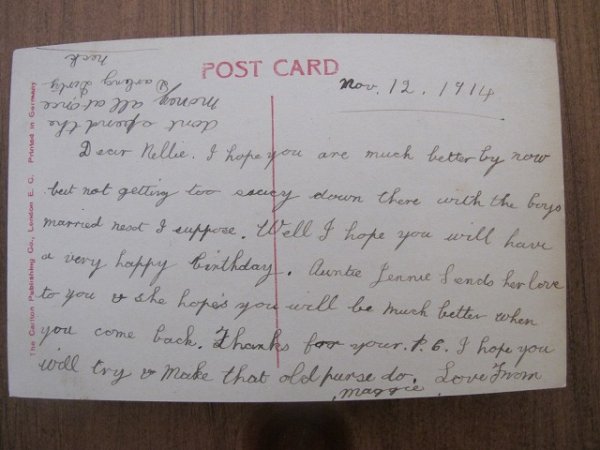 POST CARD
Nov. 12. 1914
dont spend the
money all at once
Darling Dirty
neck
Dear Nellie. I hope you are much better by now
but not getting too saucy down there with the boys
married next I suppose. Well I hope you will have
a very happy birthday. Auntie Jennie sends her love
to you & she hopes you will be much better when
you come back. Thanks for your P.C. I hope you
will try & make that old purse do. Love From
Maggie.
The Carlton Publishing Co., London E. C. Printed in Germany